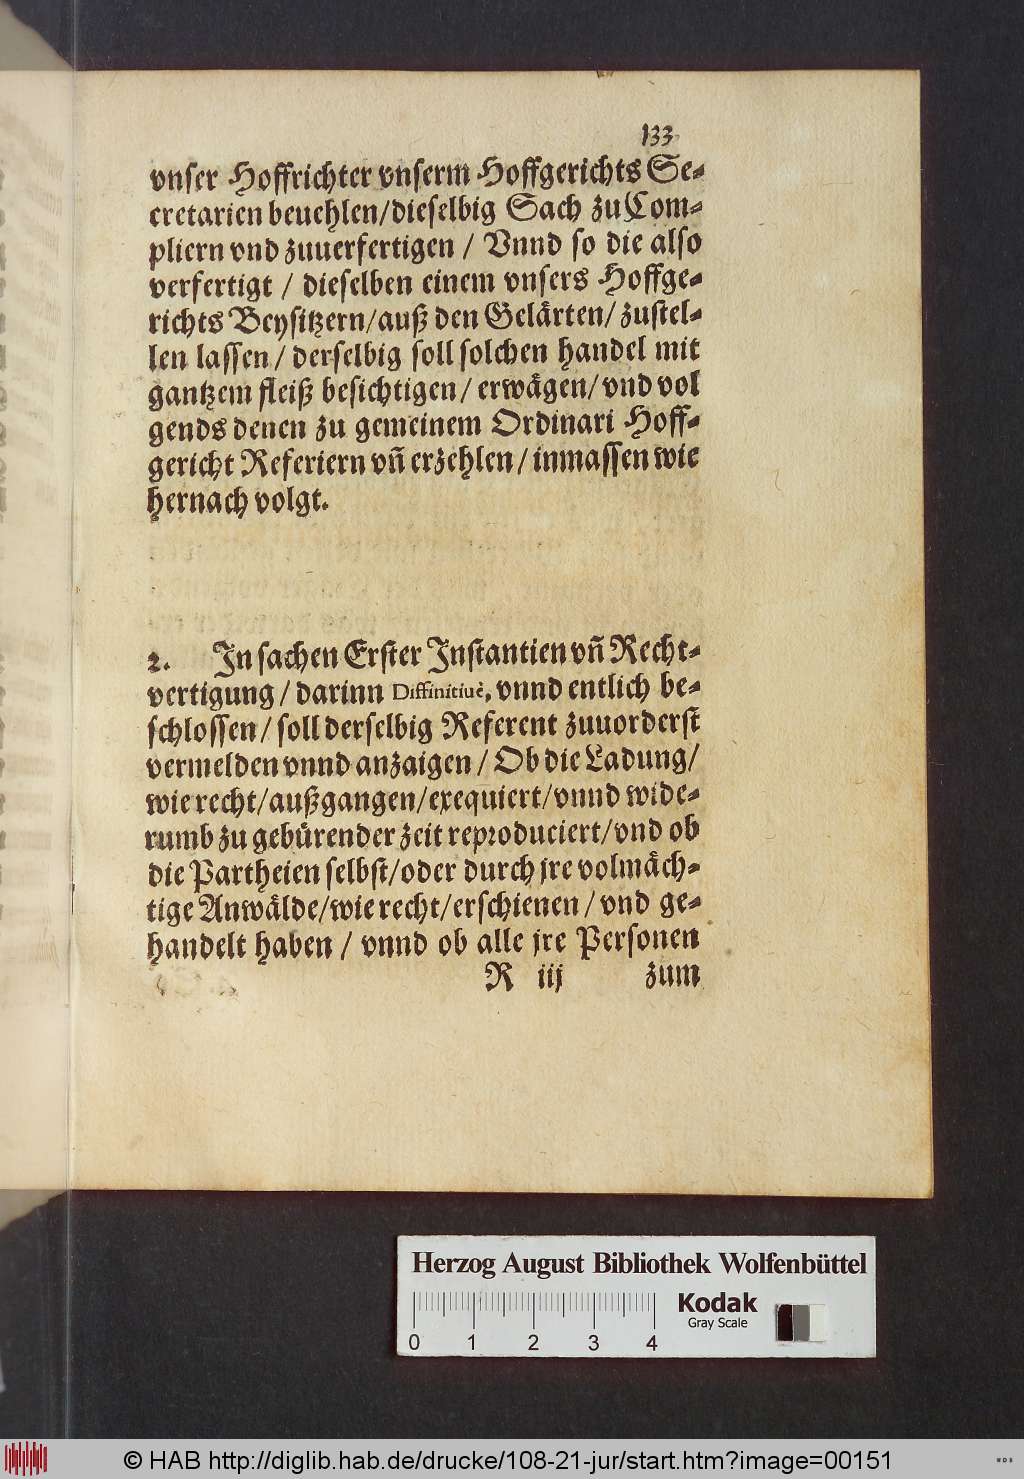 133
vnser Hoffrichter vnserm Hoffgerichts Se-
cretarien beuehlen/dieselbig Sach zu Com-
pliern vnd zuuerfertigen / Vnnd so die also
verfertigt / dieselben einem vnsers Hoffge-
richts Beysitzern/auß den Gelärten/ zustel-
len lassen/ derselbig soll solchen handel mit
gantzem fleiß besichtigen/ erwägen/ vnd vol
gends denen zu gemeinem Ordinari Hoff-
gericht Referiern vn̄ erzehlen/ inmassen wie
hernach volgt.
2. In sachen Erster Instantien vn̄ Recht-
vertigung/ darinn Diffinitiuè, vnnd entlich be-
schlossen/ soll derselbig Referent zuuorderst
vermelden vnnd anzaigen/ Ob die Ladung/
wie recht/außgangen/exequiert/vnnd wide-
rumb zu gebürender zeit reproduciert/vnd ob
die Partheien selbst/oder durch jre volmäch-
tige Anwälde/wie recht/erschienen/ vnd ge-
handelt haben / vnnd ob alle jre Personen
R iij zum
Herzog August Bibliothek Wolfenbüttel
0 1 2 3 4
Kodak
Gray Scale
© HAB http://diglib.hab.de/drucke/108-21-jur/start.htm?image=00151